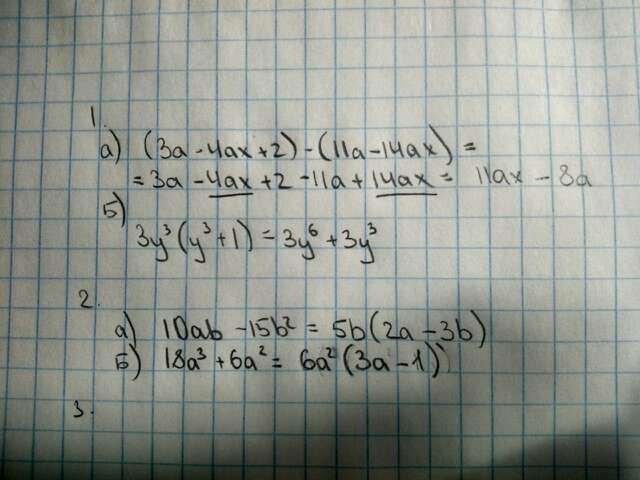 1.
а) (3a - 4ax + 2) - (11a - 14ax) =
= 3a - 4ax + 2 - 11a + 14ax = 11ax - 8a
Б)
3y³(y³ + 1) = 3y⁶ + 3y³
2.
а) 10ab - 15b² = 5b(2a - 3b)
Б) 18a³ + 6a² = 6a²(3a - 1)
3.